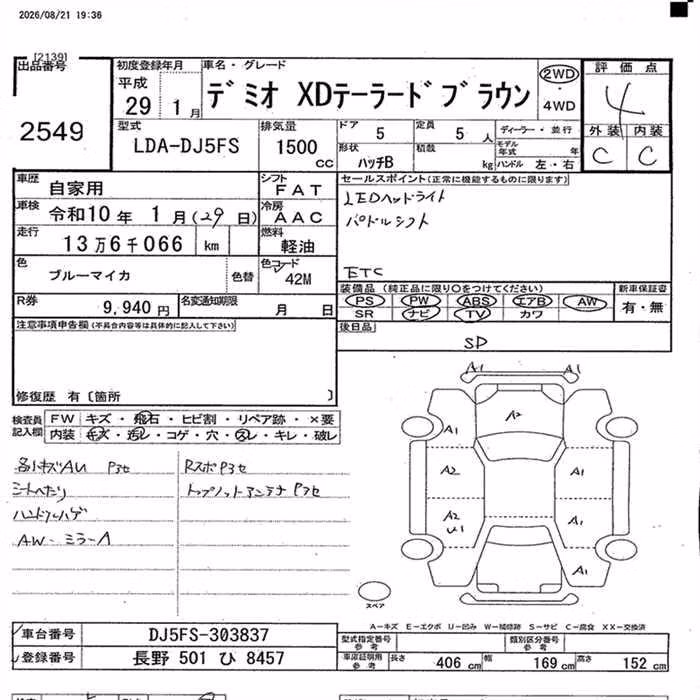 2026/08/21 19:36
[2139]
出品番号
2549
初度登録年月
平成 29 1月
車名・グレード
デミオ XDテーラードブラウン
2WD
4WD
評価点
4
外装 内装
C C
型式
LDA-DJ5FS
排気量
1500 cc
ドア 5
定員 5 人
形状 ハッチB
積載 kg
ディーラー・並行
モデル年式 年
ハンドル 左・右
車歴 自家用
シフト FAT
車検 令和10年 1月(29日)
冷房 AAC
走行 13万6千066 km
燃料 軽油
色 ブルーマイカ 色替
色コード 42M
R券 9,940円
名変通知期限 月 日
セールスポイント(正常に機能するものに限ります)
LEDヘッドライト
パドルシフト
ETC
装備品 (純正品に限り○をつけてください)
PS PW ABS エアB AW
SR ナビ TV カワ
新車保証書
有・無
後日品
SD
注意事項申告欄(不具合内容等は具体的に記入して下さい)
修復歴 有〔箇所 〕
検査員記入欄
FW キズ・飛石・ヒビ割・リペア跡・×要
内装 キズ・汚レ・コゲ・穴・スレ・キレ・破レ
各小キズAU Pヨセ
シートヘたり
ハンドルハゲ
AW・ミラーA
RスポPヨセ
トップノットアンテナPヨセ
A1 A1
A1
A2
A2
A1
A2
U1
A1
A1
スペア
A－キズ E－エクボ U－凹み W－補修跡 S－サビ C－腐食 XX－交換済
車台番号 DJ5FS-303837
登録番号 長野 501 ひ 8457
型式指定番号参考
類別区分番号参考
車庫証明用参考
長さ 406 cm 幅 169 cm 高さ 152 cm